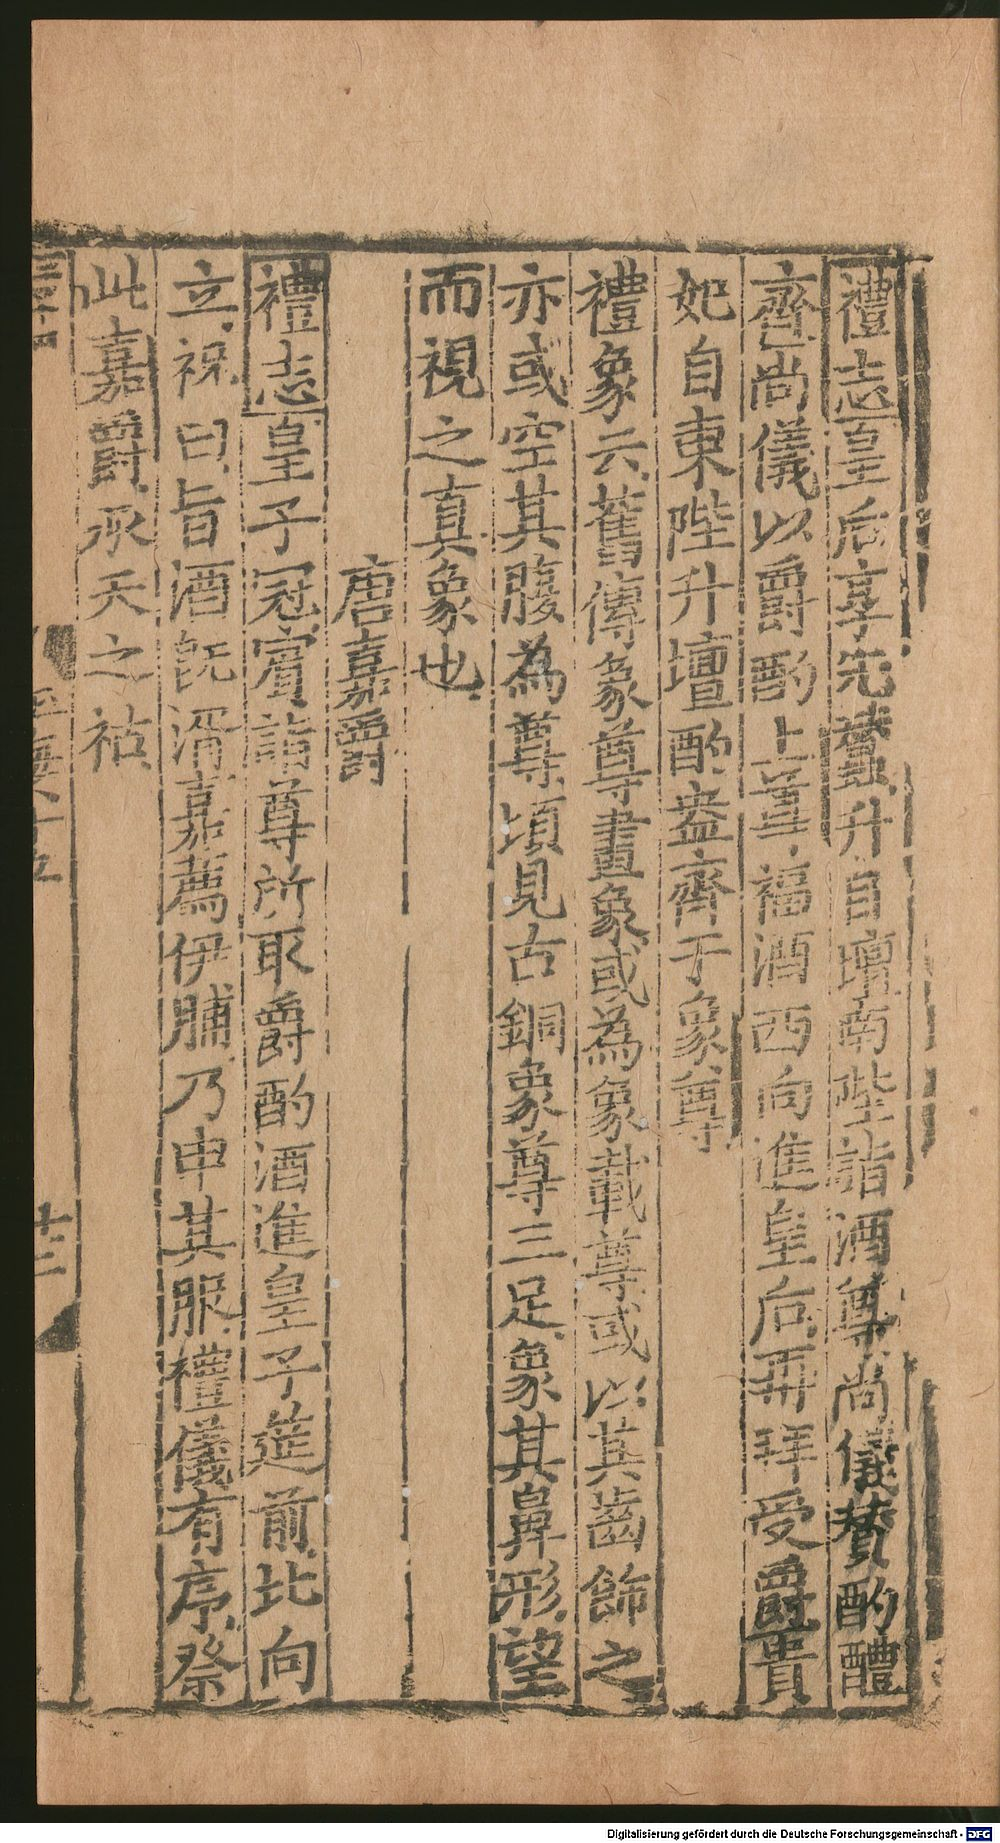 禮志皇后享先蠶升自壇南陛詣酒尊尚儀贊酌醴
齊尚儀以爵酌上尊福酒西向進皇后再拜受爵貴
妃自東陛升壇酌盎齊于象尊
禮象云舊傳象尊畫象或為象載尊或以其齒飾之
亦或空其腹為尊頃見古銅象尊三足象其鼻形望
而視之真象也
唐嘉爵
禮志皇子冠賓詣尊所取爵酌酒進皇子筵前北向
立祝曰旨酒既湑嘉薦伊脯乃申其服禮儀有序祭
此嘉爵承天之祜
廿二
Digitalisierung gefördert durch die Deutsche Forschungsgemeinschaft - DFG